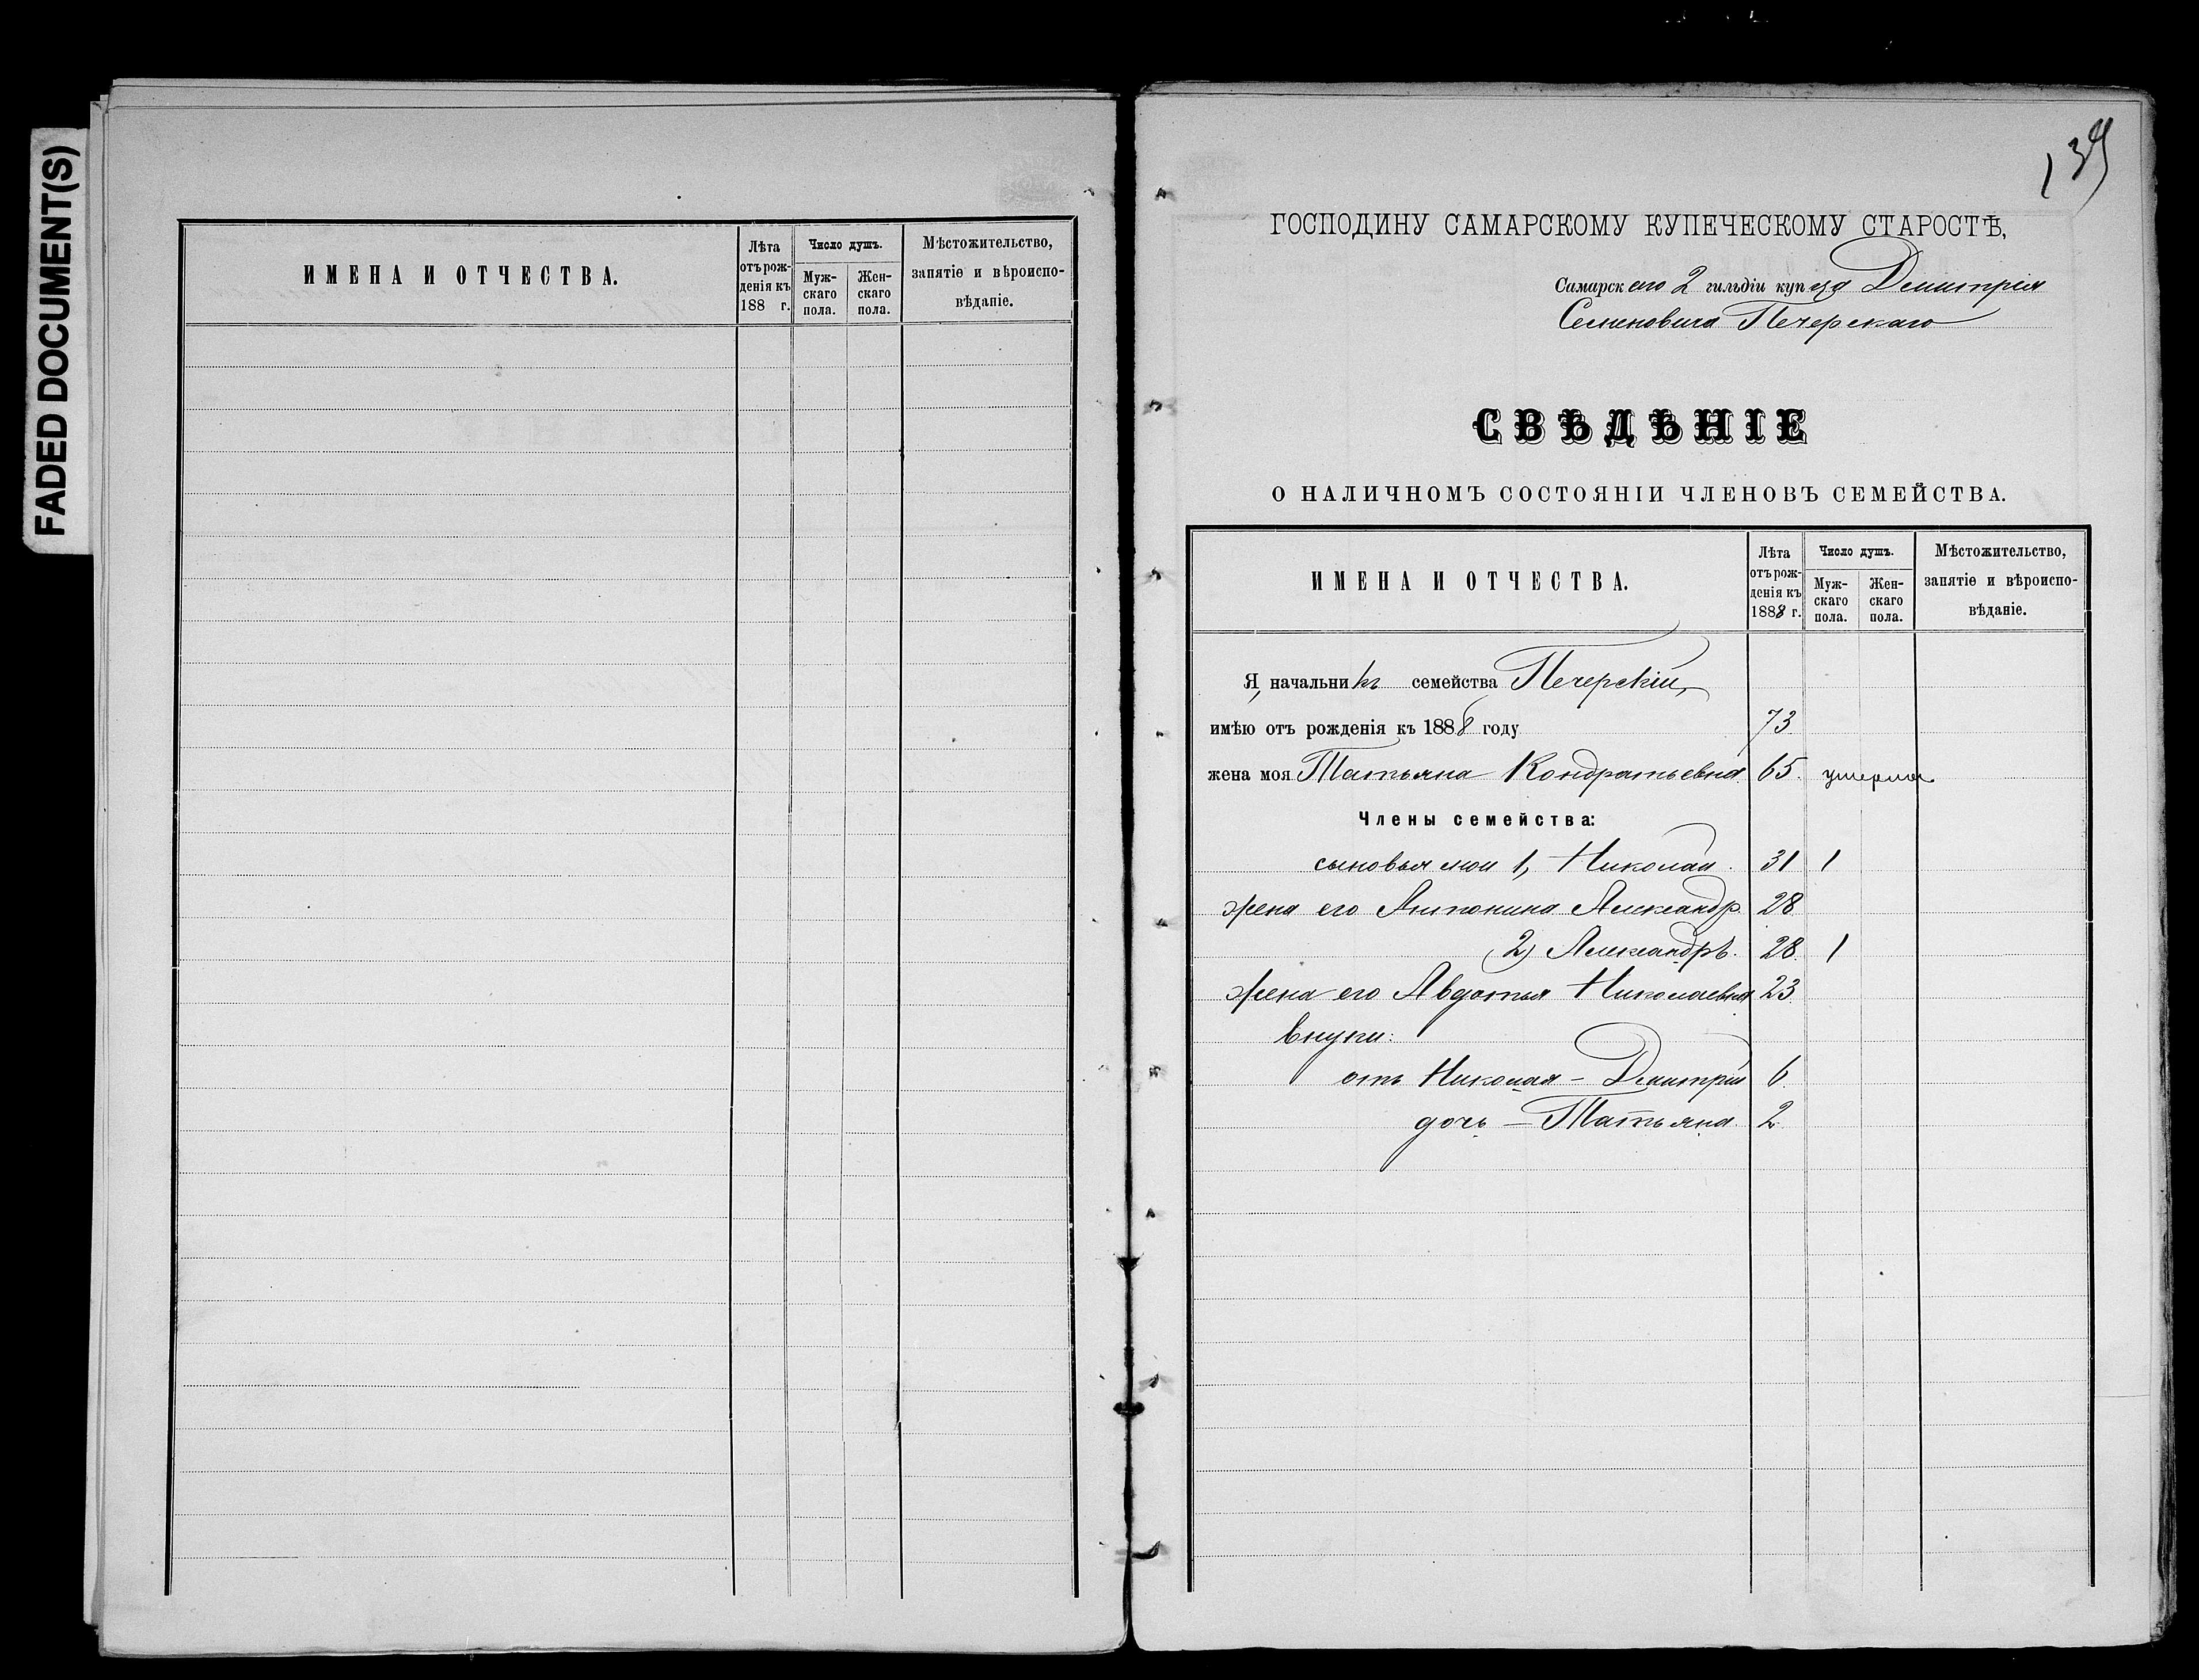 FADED DOCUMENT(S)
ИМЕНА И ОТЧЕСТВА.
Лѣта отъ рожденія къ 188 г.
Число душъ.
Мужскаго пола.
Женскаго пола.
Мѣстожительство, занятіе и вѣроисповѣданіе.
139
ГОСПОДИНУ САМАРСКОМУ КУПЕЧЕСКОМУ СТАРОСТѢ,
Самарскаго 2 гильдіи купца Дмитрія
Семеновича Печерскаго
СВѢДѢНІЕ
О НАЛИЧНОМЪ СОСТОЯНІИ ЧЛЕНОВЪ СЕМЕЙСТВА.
ИМЕНА И ОТЧЕСТВА.
Лѣта отъ рожденія къ 1888 г.
Число душъ.
Мужскаго пола.
Женскаго пола.
Мѣстожительство, занятіе и вѣроисповѣданіе.
Я, начальникъ семейства Печерскій,
имѣю отъ рожденія къ 1888 году 73
жена моя Татьяна Кондратьевна 65. умерла
Члены семейства:
сыновья мои 1, Николай. 31 1
жена его Антонина Александр. 28
2) Александръ. 28. 1
жена его Авдотья Николаевна 23.
внуки:
отъ Николая – Дмитрій 6
дочь – Татьяна. 2